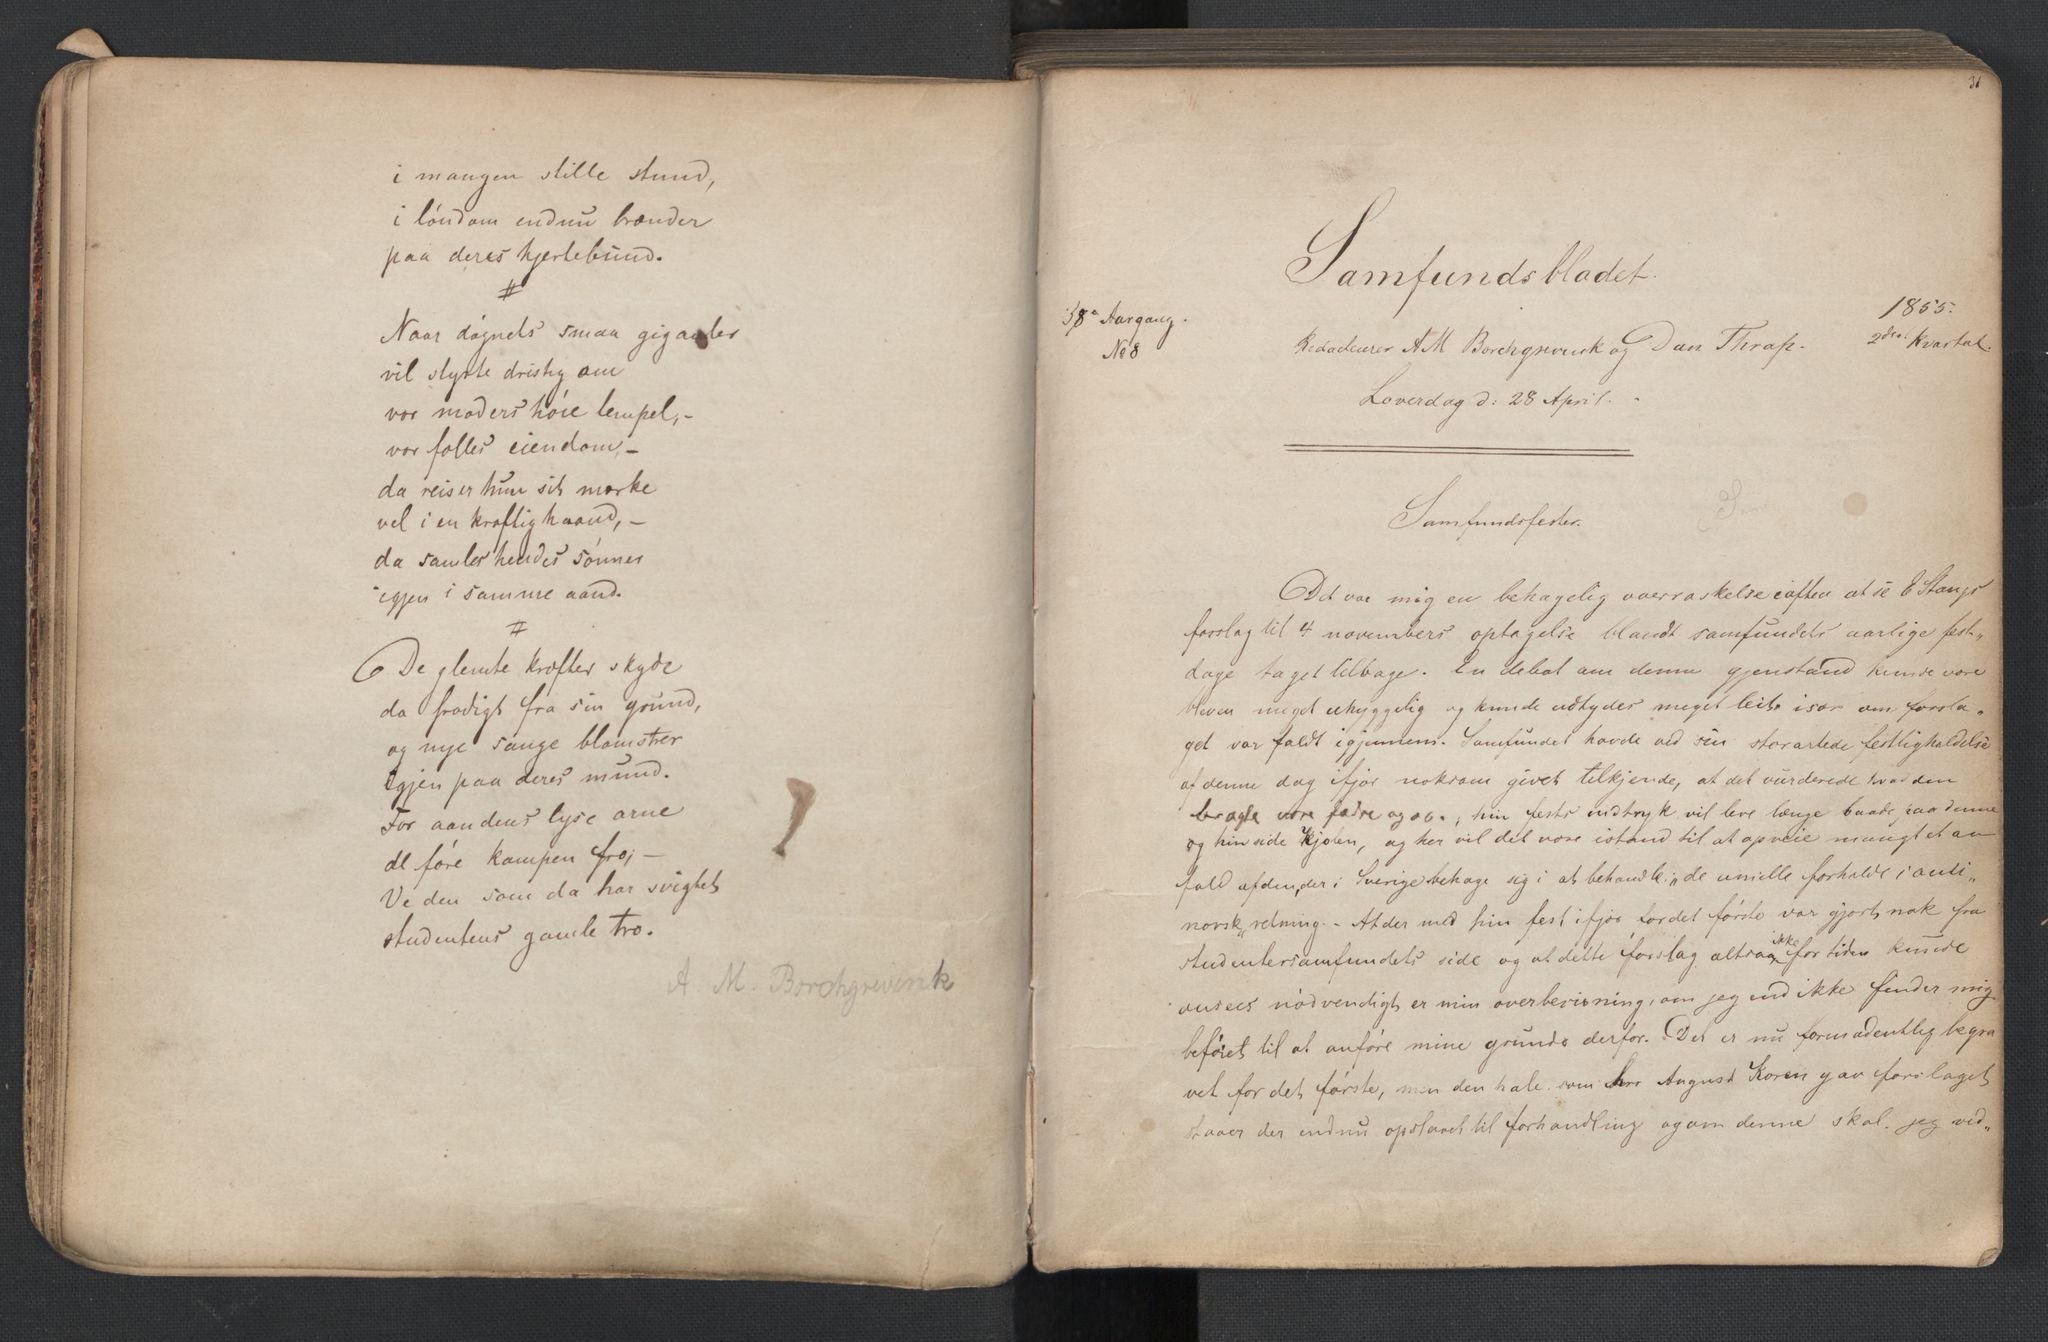 i mangen stille stund,
i lóndom endnu brænder
paa deres hjertebund.
#
Naar dógnets smaa giganter
vil styrte dristig om
vor moders hóie tempel, –
vor fælles eiendom, –
da reiser hun sit mærke
vel i en kraftig haand, –
da samler hendes sónner
igjen i samme aand.
#
De glemte kræfter skyde
da frodigt fra sin grund,
og nye sange blomstrer
igjen paa deres mund.
For aandens lyse arne
de fóre kampen fro; –
Ve den som da har svigtet
studentens gamle tro.
A. M. Borchgrevink
31
Samfundsbladet.
Aargang.
No 8
1855.
2det Kvartal.
Redacteurer A M Borchgrevink og Dan Thrap.
Loverdag d: 28 April.
Samfundsfester.
Det var mig en behagelig overraskelse iaften at se E Stangs
forslag til 4 novembers optagelse blandt samfundets aarlige fest„
dage taget tilbage. En debat om denne gjenstand kunde være
bleven meget uhyggelig og kunde udtydes meget leit, især om forsla„
get var faldt igjennem. Samfundet havde ved sin storartede festligholdelse
af denne dag ifjor noksom givet tilkjende, at det vurderede hvad den
bragte vore fædre og os; hin fests indtryk vil leve længe baade paa denne
og hin side Kjólen, og her vil det være istand til at opveie mangt et an
fald af den, der i Sverige behage sig i at behandle „de unielle forholde i anti„
norsk„ retning. – At der med hin fest ifjor for det fórste var gjort nok fra
studentersamfundets side og at dette forslag altsaa ikke for tiden kunde
ansees nódvendigt er min overbevisning, om jeg end ikke finder mig
befóiet til at anfóre mine grunde derfor. Det er nu formodentlig begra
vet for det fórste, men den hale som hr August Koren gav forslaget
staaer der endnu opslaaet til forhandling og om denne skal jeg ved„